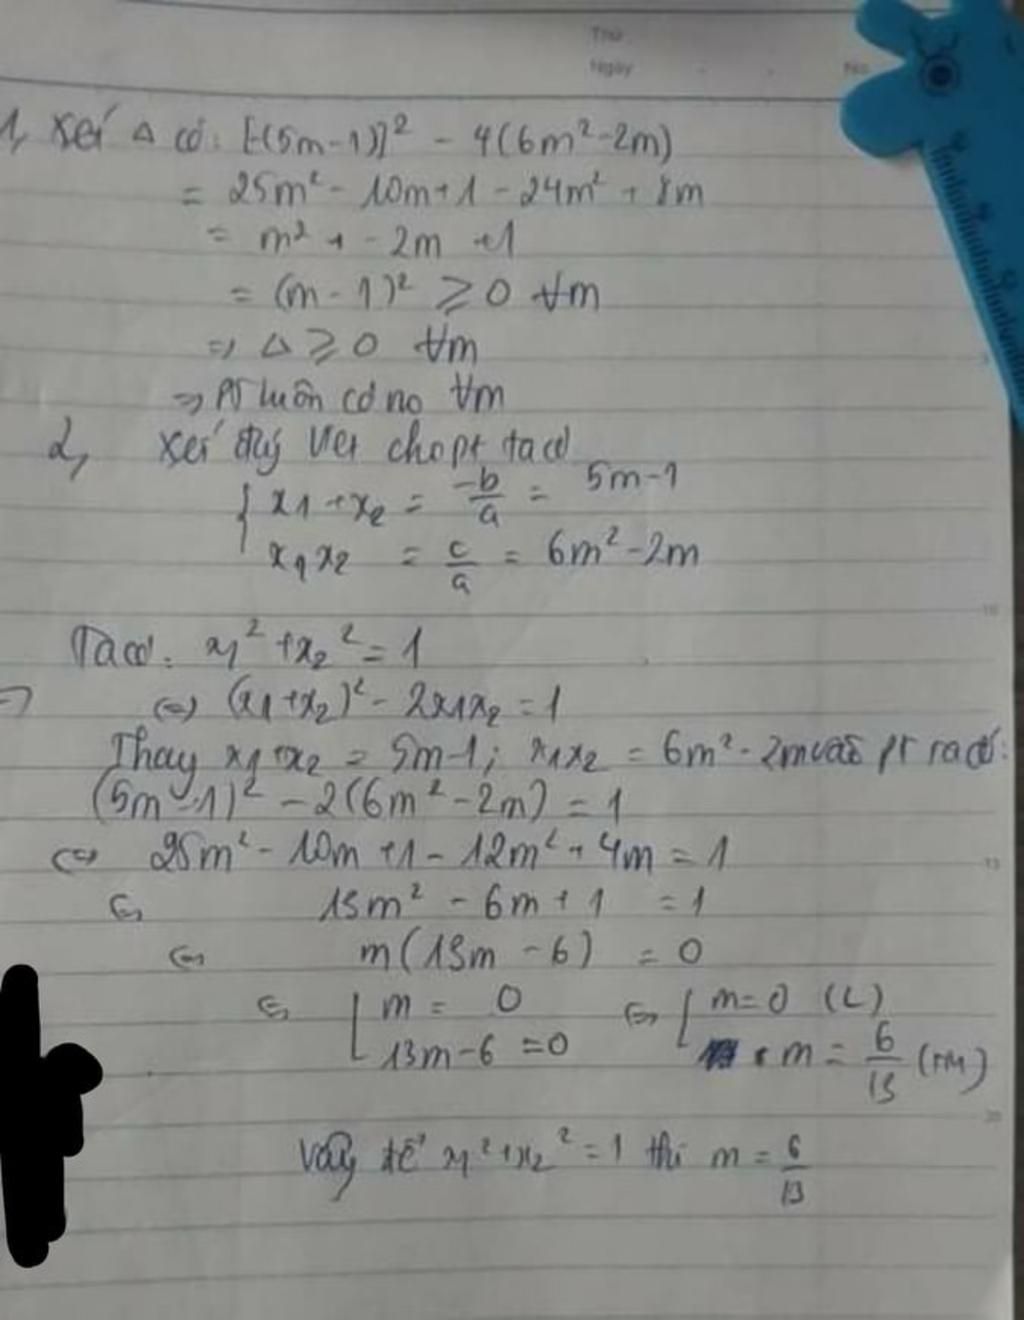 Thứ
Ngày
No
1, Xét Δ có: [-(5m-1)]² - 4(6m²-2m)
= 25m² - 10m+1 - 24m² + 8m
= m² + -2m +1
= (m-1)² ⩾ 0 ∀m
=> Δ ⩾ 0 ∀m
=> PT luôn có no ∀m
2, Xét đlý Vet cho pt ta có
{ x1 + x2 = -b/a = 5m-1
x1x2 = c/a = 6m² - 2m
Ta có: x1² + x2² = 1
(=) (x1+x2)² - 2x1x2 = 1
Thay x1+x2 = 5m-1; x1x2 = 6m² - 2m vào pt ta có:
(5m-1)² - 2(6m² - 2m) = 1
<=> 25m² - 10m +1 - 12m² + 4m = 1
<=> 13m² - 6m + 1 = 1
<=> m(13m - 6) = 0
<=> [ m = 0 <=> [ m=0 (L)
13m-6 =0 m = 6/13 (TM)
Vậy để x1²+x2² = 1 thì m = 6/13